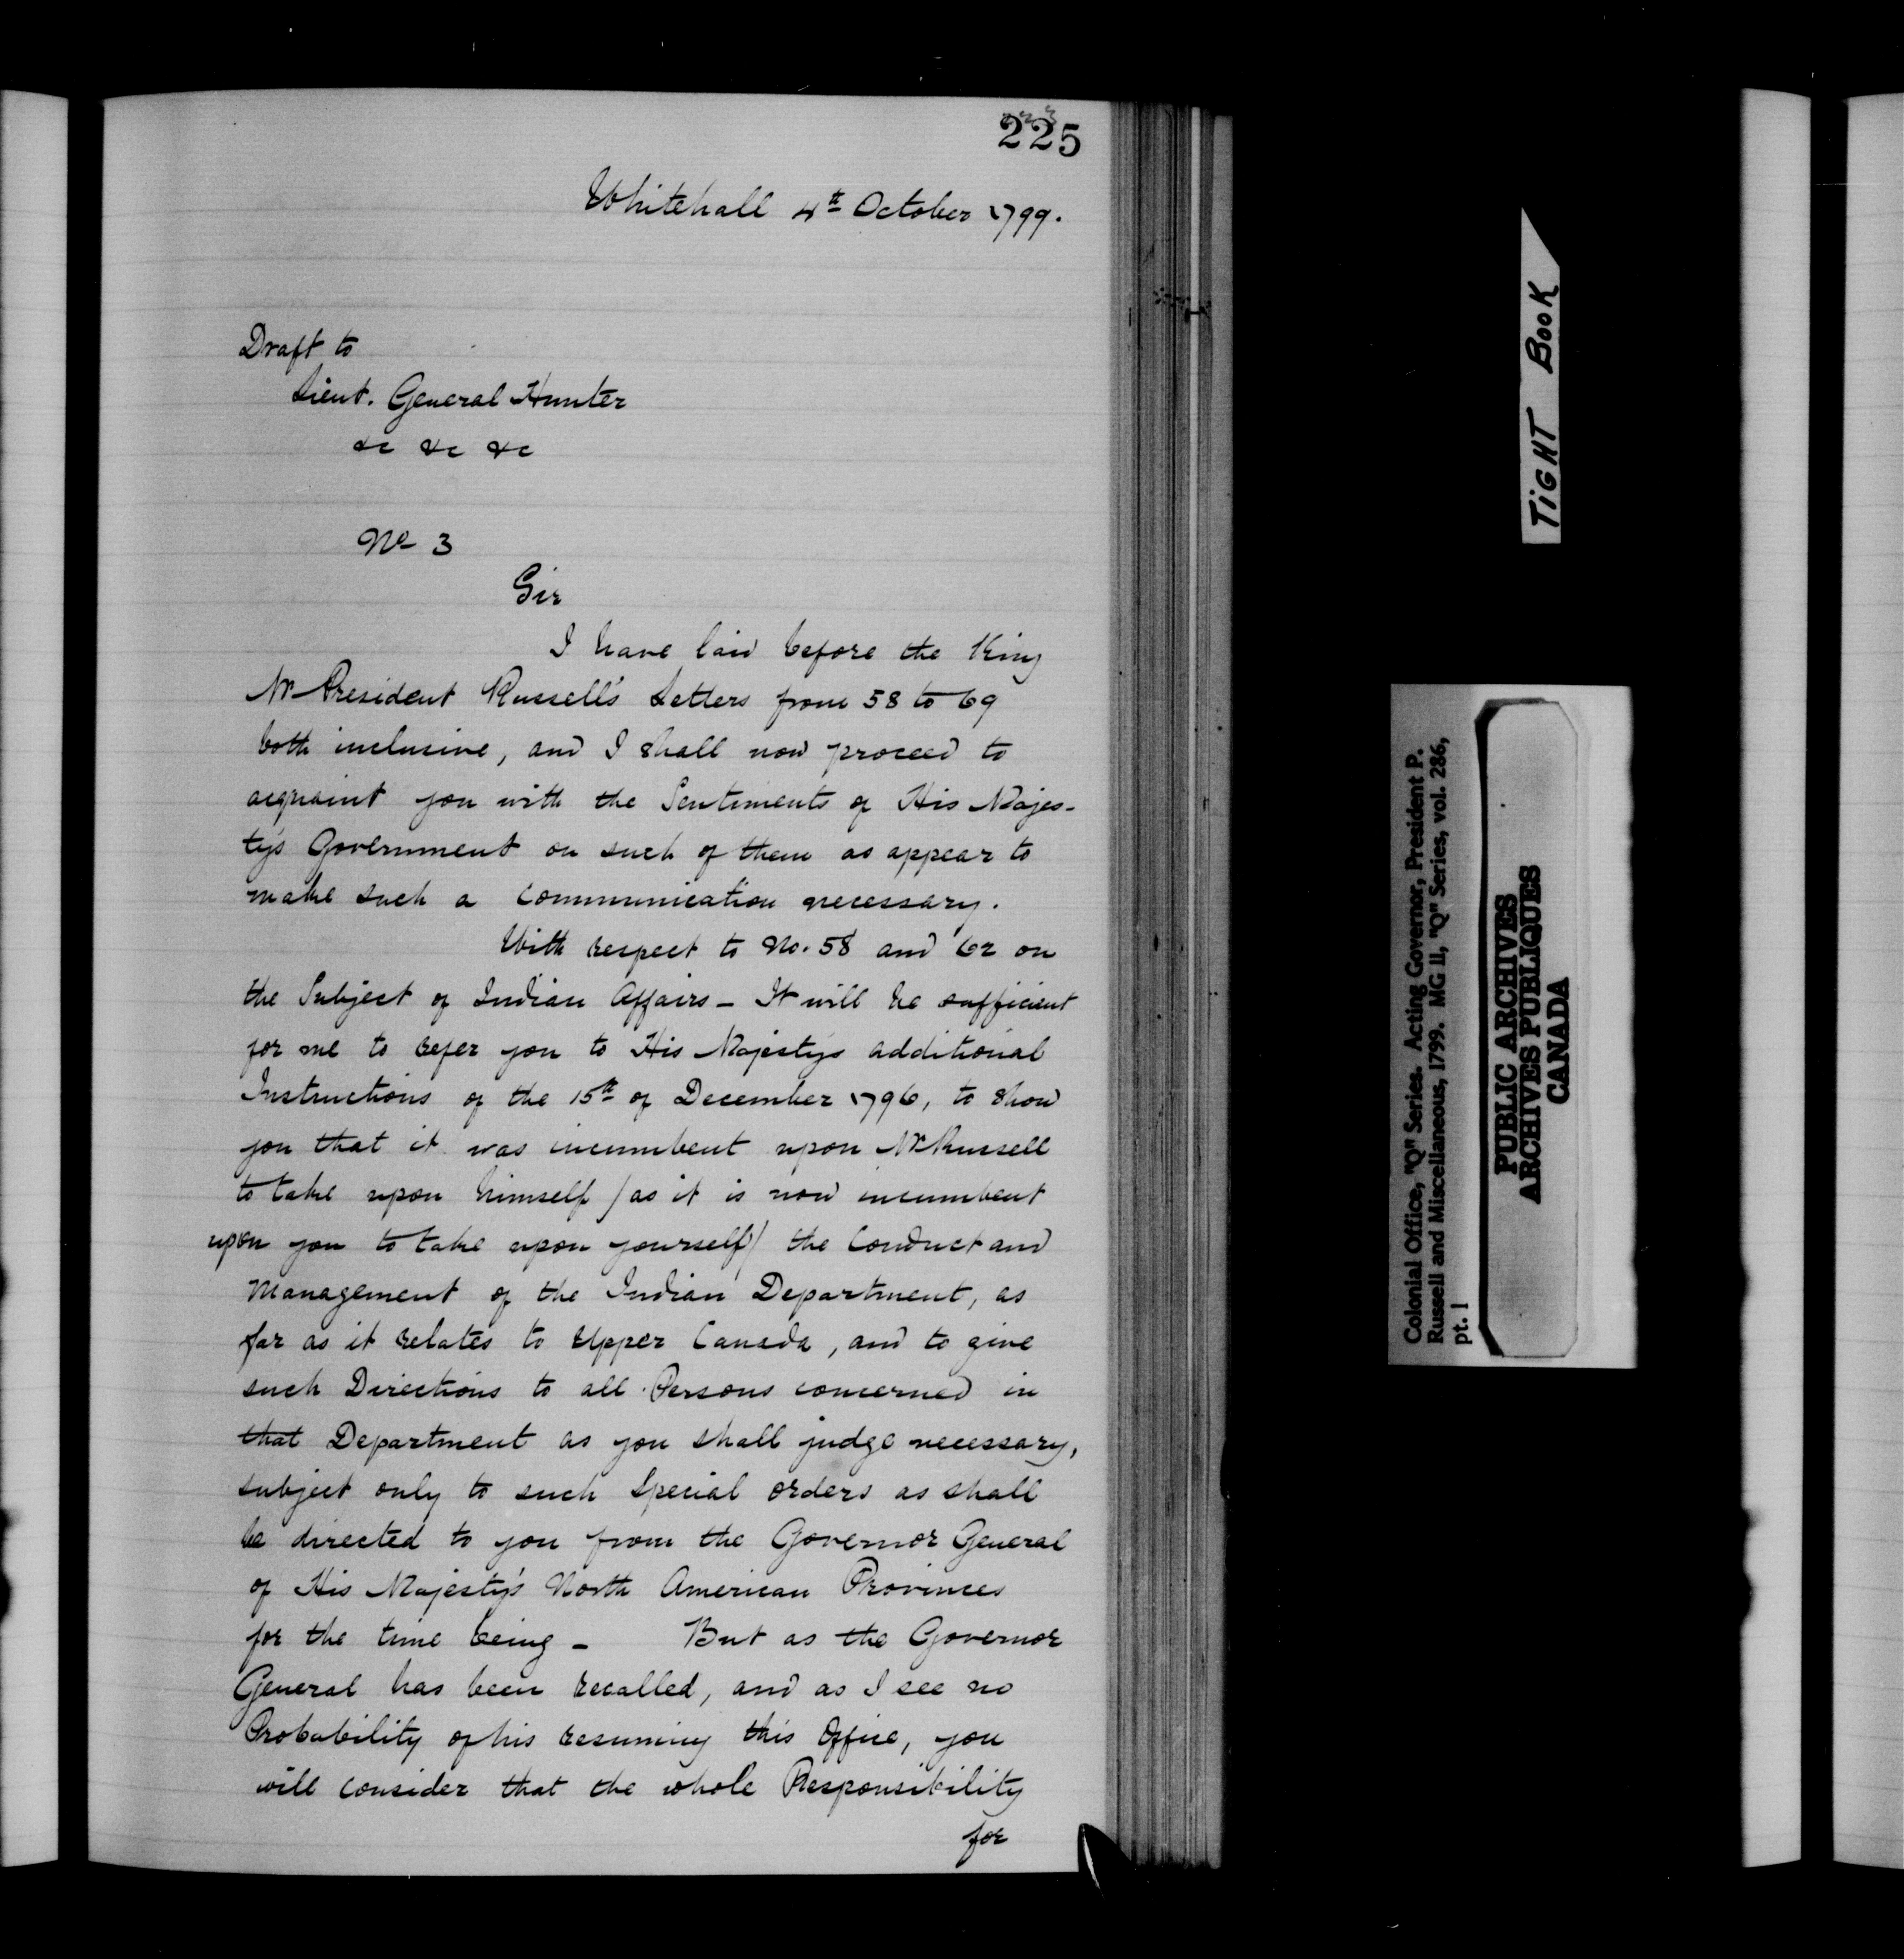 225
Whitehall 4th October 1799.
Draft to
Lieut. General Hunter
&c &c &c
No 3
Sir
I have laid before the King
Mr President Russell's Letters from 58 to 69
both inclusive, and I shall now proceed to
acquaint you with the Sentiments of His Majes-
ty's Government on such of them as appear to
make such a Communication necessary.
With respect to No. 58 and 62 on
the Subject of Indian Affairs - It will be sufficient
for me to refer you to His Majesty's additional
Instructions of the 15th of December 1796, to show
you that it was incumbent upon Mr Russell
to take upon himself / as it is now incumbent
upon you to take upon yourself / the Conduct and
Management of the Indian Department, as
far as it relates to Upper Canada, and to give
such Directions to all Persons concerned in
that Department as you shall judge necessary,
subject only to such special orders as shall
be directed to you from the Governor General
of His Majesty's North American Provinces
for the time being - But as the Governor
General has been recalled, and as I see no
Probability of his resuming this Office, you
will consider that the whole Responsibility
for
TIGHT BOOK
Colonial Office, "Q" Series. Acting Governor, President P.
Russell and Miscellaneous, 1799. MG II, "Q" Series, vol. 286,
pt. 1
PUBLIC ARCHIVES
ARCHIVES PUBLIQUES
CANADA